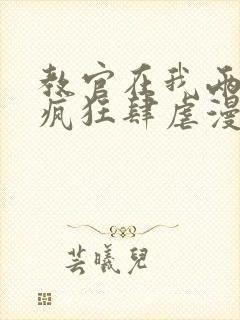 教官在我两
疯狂肆虐漫
芸曦儿